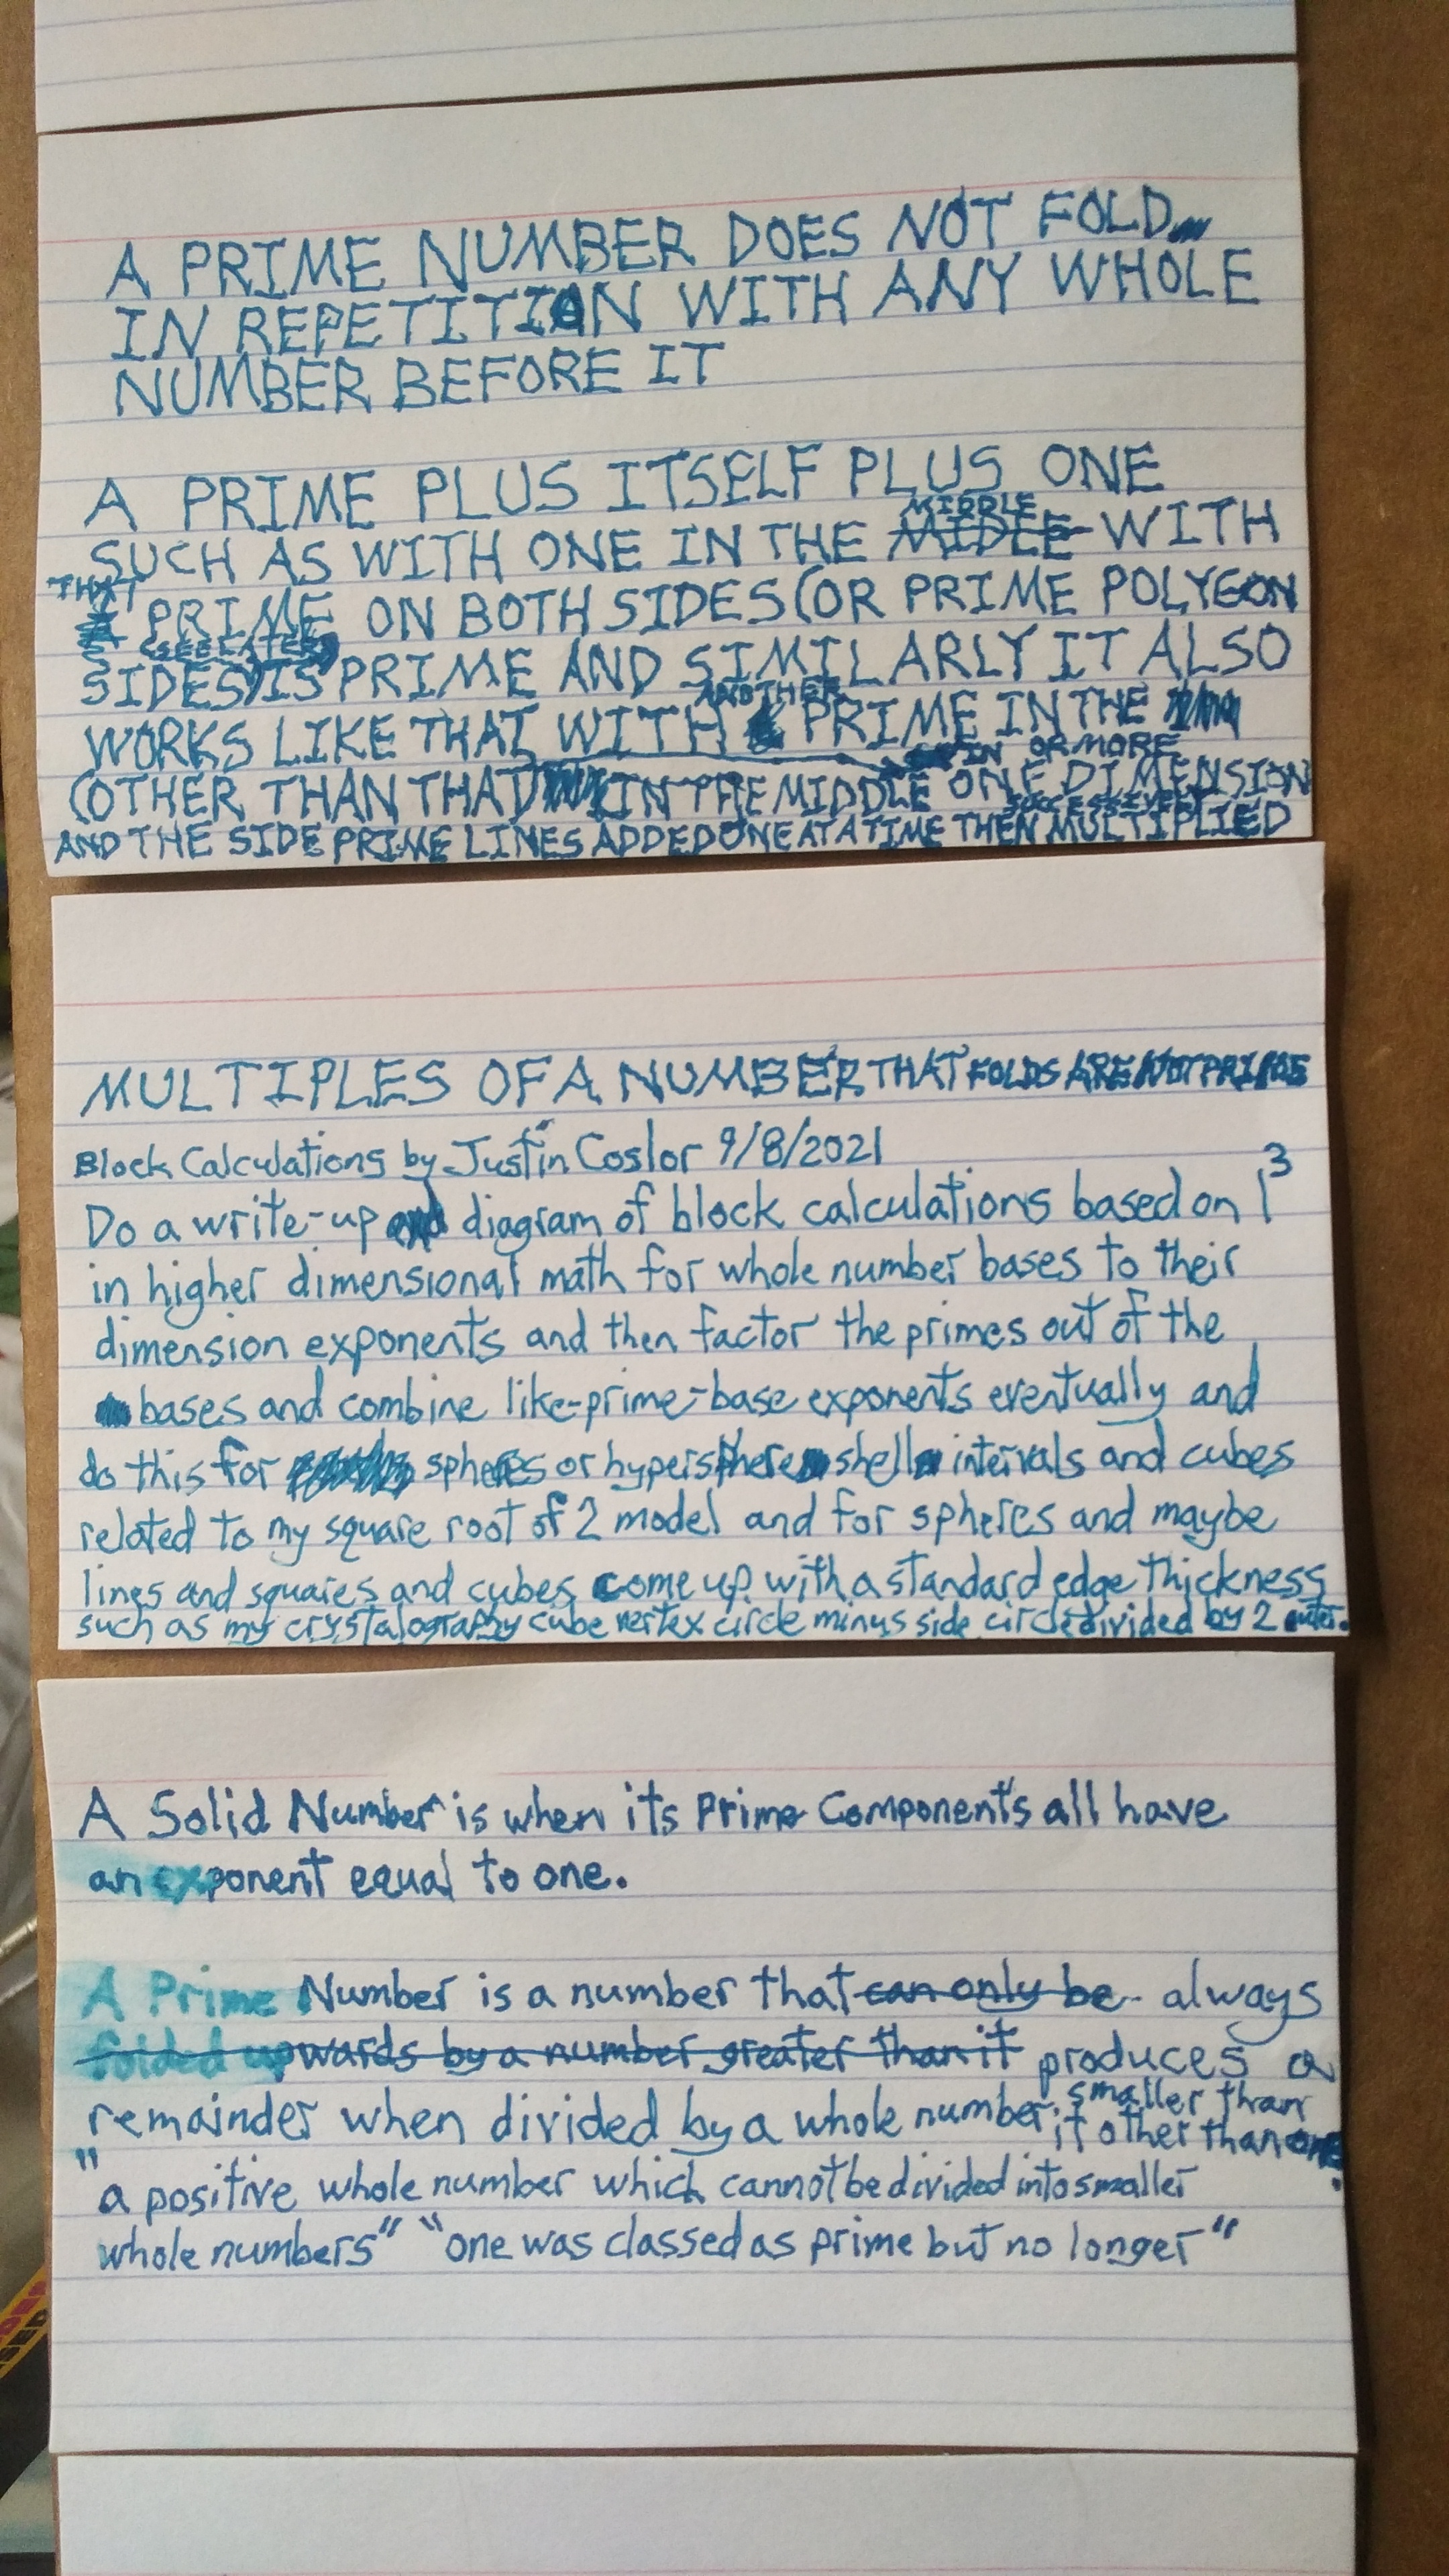 A PRIME NUMBER DOES NOT FOLD
IN REPETITION WITH ANY WHOLE
NUMBER BEFORE IT
A PRIME PLUS ITSELF PLUS ONE
MIDDLE
SUCH AS WITH ONE IN THE MIDLE WITH
THAT
PRIME ON BOTH SIDES (OR PRIME POLYGON
(SEE LATER)
SIDES) IS PRIME AND SIMILARLY IT ALSO
ANOTHER
WORKS LIKE THAT WITH PRIME IN THE
IN OR MORE
(OTHER THAN THAT) IN THE MIDDLE ONE DIMENSION
SUCCESSIVELY
AND THE SIDE PRIME LINES ADDED ONE AT A TIME THEN MULTIPLIED
MULTIPLES OF A NUMBER THAT FOLDS ARE NOT PRIME
Block Calculations by Justin Coslor 9/8/2021
Do a write-up and diagram of block calculations based on 1³
in higher dimensional math for whole number bases to their
dimension exponents and then factor the primes out of the
bases and combine like-prime-base exponents eventually and
do this for spheres or hypersphere shell intervals and cubes
related to my square root of 2 model and for spheres and maybe
lines and squares and cubes come up with a standard edge thickness
such as my crystalography cube vertex circle minus side circle divided by 2
A Solid Number is when its Prime Components all have
an exponent equal to one.
A Prime Number is a number that can only be always
folded upwards by a number greater than it produces a
remainder when divided by a whole number smaller than
it other than one.
"a positive whole number which cannot be divided into smaller
whole numbers" "one was classed as prime but no longer"